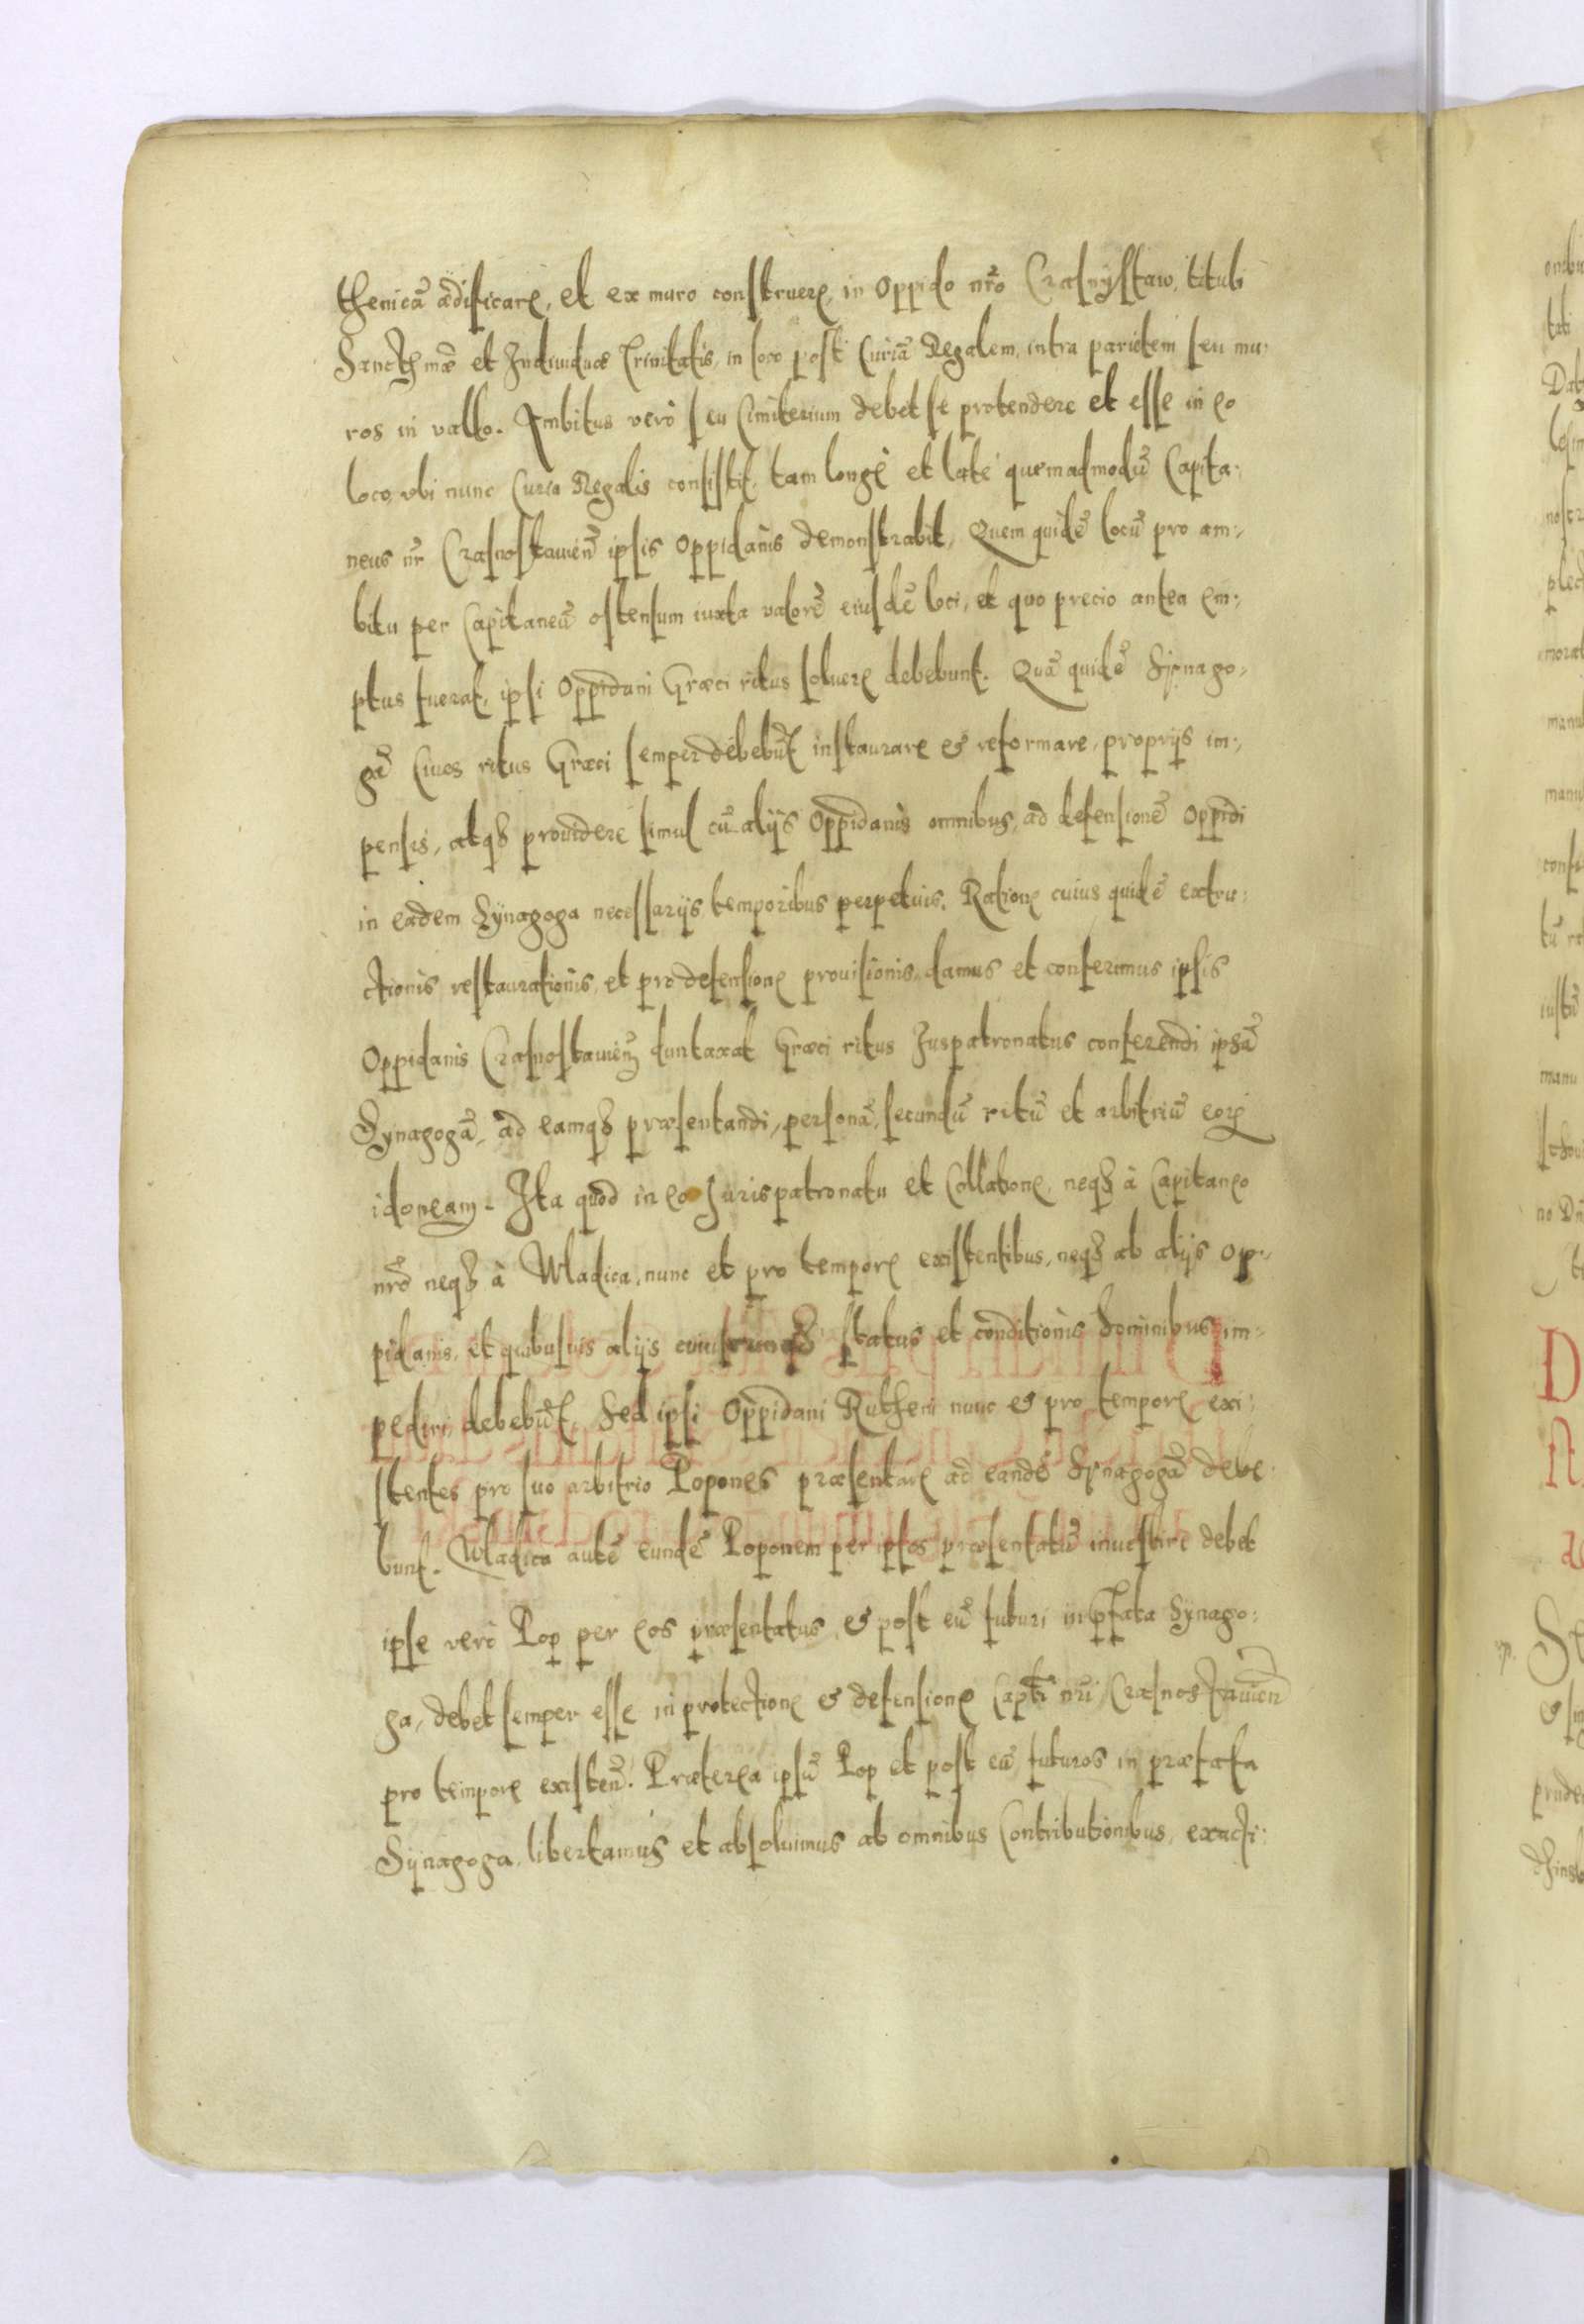 thenicã ædificare, et ex muro construere, in Oppido nr̃o Crasnÿstaw, tituli
Sanctissimæ et Indiuiduæ Trinitatis, in loco post Curiã Regalem, intra parietem seu mu-
ros in vallo. Ambitus verò seu Cimiterium debet se protendere et esse in eo
loco, vbi nunc Curia Regalis consistit, tam longè et latè quemadmodũ Capita-
neus nr̃ Crasnostauieñ ipsis Oppidanis demonstrabit, Quem quidẽ locũ pro am-
bitu per Capitaneũ ostensum iuxta valorẽ eiusdẽ loci, et quo precio antea em-
ptus fuerat, ipsi Oppidani Græci ritus soluere debebunt. Quã quidẽ Sÿnago-
gã Ciues ritus Græci semper debebũt instaurare & reformare, proprijs im-
pensis, atq₃ prouidere simul cũ alijs Oppidanis omnibus, ad defensionẽ Oppidi
in eadem Sÿnagoga necessarijs temporibus perpetuis. Ratione cuius quidẽ extru-
ctionis restaurationis, et pro defensione prouisionis, damus et conferimus ipsis
Oppidanis Crasnostauieñ duntaxat Græci ritus Juspatronatus conferendi ipsã
Sÿnagogã, ad eamq₃ præsentandi, personã, secundũ ritũ et arbitriũ eorꝝ
idoneam. Ita quod in eo Jurispatronatu et Collatione, neq₃ à Capitaneo
nr̃o neq₃ à Wladica, nunc et pro tempore existentibus, neq₃ ab alijs Op-
pidanis, et quibusuis alijs cuiuscunq₃ status et conditionis hominibus im-
pediri debebũt, Sed ipsi Oppidani Rutheni nunc & pro tempore exi-
stentes pro suo arbitrio Popones præsentare ad eandẽ Sÿnagogã debe-
bunt. Wladica autẽ eundẽ Poponem per ipsos præsentatũ inuestire debet
ipse verò Pop per eos præsentatus, & post eũ futuri in p̃fata Sÿnago-
ga, debet semper esse in protectione & defensione Captĩ nr̃i Crasnostauieñ
pro tempore existeñ. Præterea ipsũ Pop et post eũ futuros in præfata
Sÿnagoga, libertamus et absoluimus ab omnibus Contributionibus, exacti-